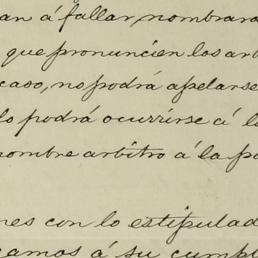 an á fallar, nombrara
que pronuncien los arb
caso, no podrá apelarse
lo podrá ocurrirse á l
nombre arbitro á la pa
nes con lo estipulad
gamos á su cumpl